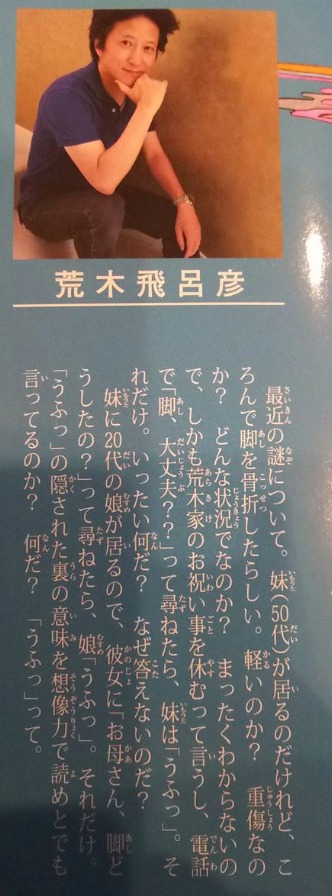 荒木飛呂彦
最近の謎について。妹(50代)が居るのだけれど、こ
ろんで脚を骨折したらしい。軽いのか？　重傷なの
か？　どんな状況でなのか？　まったくわからないの
で、しかも荒木家のお祝い事を休むって言うし、電話
で「脚、大丈夫？？」って尋ねたら、妹は「うふっ」。そ
れだけ。いったい何だ？　なぜ答えないのだ？
妹に20代の娘が居るので、彼女に「お母さん、脚ど
うしたの？」って尋ねたら、娘「うふっ」。それだけ。
「うふっ」の隠された裏の意味を想像力で読めとでも
言ってるのか？　何だ？　「うふっ」って。